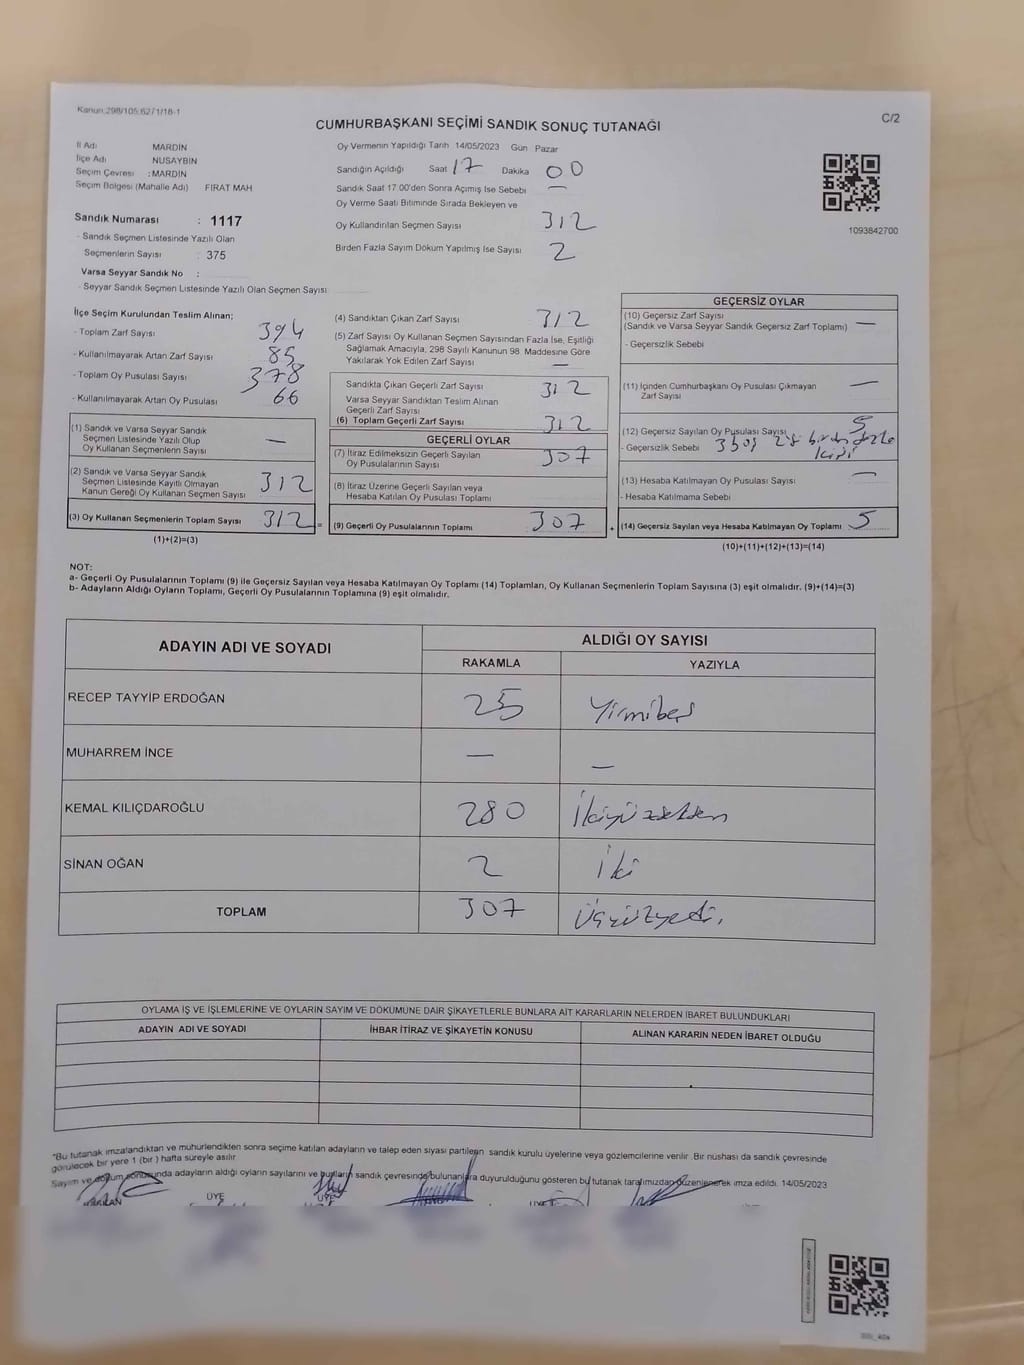 Kanun:298/105;6271/18-1
C/2
CUMHURBAŞKANI SEÇİMİ SANDIK SONUÇ TUTANAĞI
İl Adı MARDİN
İlçe Adı NUSAYBİN
Seçim Çevresi : MARDİN
Seçim Bölgesi (Mahalle Adı) FIRAT MAH
Sandık Numarası : 1117
- Sandık Seçmen Listesinde Yazılı Olan
Seçmenlerin Sayısı : 375
Varsa Seyyar Sandık No :
- Seyyar Sandık Seçmen Listesinde Yazılı Olan Seçmen Sayısı
Oy Vermenin Yapıldığı Tarih 14/05/2023 Gün Pazar
Sandığın Açıldığı Saat 17 Dakika 00
Sandık Saat 17:00'den Sonra Açımış İse Sebebi —
Oy Verme Saati Bitiminde Sırada Bekleyen ve
Oy Kullandırılan Seçmen Sayısı 312
Birden Fazla Sayım Döküm Yapılmış İse Sayısı 2
1093842700
İlçe Seçim Kurulundan Teslim Alınan;
- Toplam Zarf Sayısı 394
- Kullanılmayarak Artan Zarf Sayısı 85
- Toplam Oy Pusulası Sayısı 378
- Kullanılmayarak Artan Oy Pusulası 66
(1) Sandık ve Varsa Seyyar Sandık
Seçmen Listesinde Yazılı Olup
Oy Kullanan Seçmenlerin Sayısı —
(2) Sandık ve Varsa Seyyar Sandık
Seçmen Listesinde Kayıtlı Olmayan
Kanun Gereği Oy Kullanan Seçmen Sayısı 312
(3) Oy Kullanan Seçmenlerin Toplam Sayısı 312 =
(1)+(2)=(3)
(4) Sandıktan Çıkan Zarf Sayısı 312
(5) Zarf Sayısı Oy Kullanan Seçmen Sayısından Fazla İse, Eşitliği
Sağlamak Amacıyla, 298 Sayılı Kanunun 98. Maddesine Göre
Yakılarak Yok Edilen Zarf Sayısı —
Sandıkta Çıkan Geçerli Zarf Sayısı 312
Varsa Seyyar Sandıktan Teslim Alınan
Geçerli Zarf Sayısı
(6) Toplam Geçerli Zarf Sayısı 312
GEÇERLİ OYLAR
(7) İtiraz Edilmeksizin Geçerli Sayılan
Oy Pusulalarının Sayısı 307
(8) İtiraz Üzerine Geçerli Sayılan veya
Hesaba Katılan Oy Pusulası Toplamı
(9) Geçerli Oy Pusulalarının Toplamı 307 +
GEÇERSİZ OYLAR
(10) Geçersiz Zarf Sayısı
(Sandık ve Varsa Seyyar Sandık Geçersiz Zarf Toplamı) —
- Geçersizlik Sebebi
(11) İçinden Cumhurbaşkanı Oy Pusulası Çıkmayan
Zarf Sayısı —
(12) Geçersiz Sayılan Oy Pusulası Sayısı 5
- Geçersizlik Sebebi birden fazla
kişi
(13) Hesaba Katılmayan Oy Pusulası Sayısı —
- Hesaba Katılmama Sebebi
(14) Geçersiz Sayılan veya Hesaba Katılmayan Oy Toplamı 5
(10)+(11)+(12)+(13)=(14)
NOT:
a- Geçerli Oy Pusulalarının Toplamı (9) ile Geçersiz Sayılan veya Hesaba Katılmayan Oy Toplamı (14) Toplamları, Oy Kullanan Seçmenlerin Toplam Sayısına (3) eşit olmalıdır. (9)+(14)=(3)
b- Adayların Aldığı Oyların Toplamı, Geçerli Oy Pusulalarının Toplamına (9) eşit olmalıdır.
ADAYIN ADI VE SOYADI
ALDIĞI OY SAYISI
RAKAMLA YAZIYLA
RECEP TAYYİP ERDOĞAN 25 Yirmibeş
MUHARREM İNCE — —
KEMAL KILIÇDAROĞLU 280 İkiyüzseksen
SİNAN OĞAN 2 İki
TOPLAM 307 Üçyüzyedi.
OYLAMA İŞ VE İŞLEMLERİNE VE OYLARIN SAYIM VE DÖKÜMÜNE DAİR ŞİKAYETLERLE BUNLARA AİT KARARLARIN NELERDEN İBARET BULUNDUKLARI
ADAYIN ADI VE SOYADI İHBAR İTİRAZ VE ŞİKAYETİN KONUSU ALINAN KARARIN NEDEN İBARET OLDUĞU
*Bu tutanak imzalandıktan ve mühürlendikten sonra seçime katılan adayların ve talep eden siyasi partilerin sandık kurulu üyelerine veya gözlemcilerine verilir. Bir nüshası da sandık çevresinde
görülecek bir yere 1 (bir) hafta süreyle asılır.
Sayım ve döküm sonucunda adayların aldığı oyların sayılarını ve bunların sandık çevresinde bulunanlara duyurulduğunu gösteren bu tutanak tarafımızdan düzenlenerek imza edildi. 14/05/2023
BAŞKAN ÜYE ÜYE ÜYE